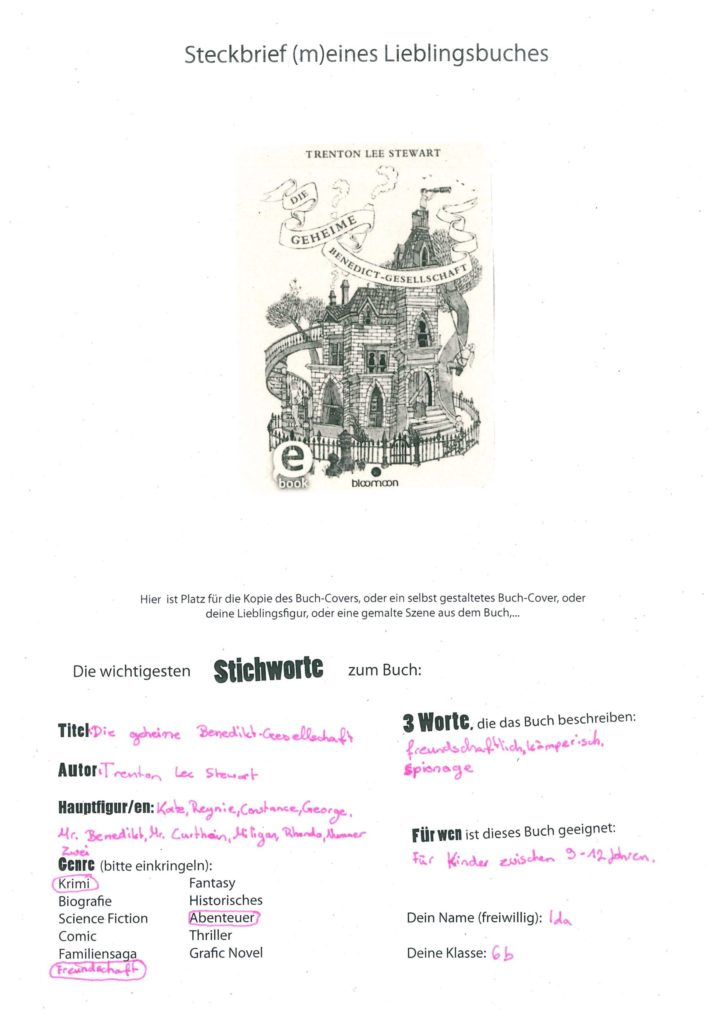 Steckbrief (m)eines Lieblingsbuches
TRENTON LEE STEWART
DIE
GEHEIME
BENEDICT-GESELLSCHAFT
e
book
bloomoon
Hier ist Platz für die Kopie des Buch-Covers, oder ein selbst gestaltetes Buch-Cover, oder
deine Lieblingsfigur, oder eine gemalte Szene aus dem Buch,...
Die wichtigesten Stichworte zum Buch:
Titel: Die geheime Benedikt-Gesellschaft
Autor: Trenton Lee Stewart
Hauptfigur/en: Kate, Reynie, Constance, George,
Mr. Benedikt, Mr. Curthain, Miligan, Rhonda, Nummer
Zwei
Genre (bitte einkringeln):
Krimi Fantasy
Biografie Historisches
Science Fiction Abenteuer
Comic Thriller
Familiensaga Grafic Novel
Freundschaft
3 Worte, die das Buch beschreiben:
freundschaftlich, kämperisch,
Spionage
Für wen ist dieses Buch geeignet:
Für Kinder zwischen 9-12 Jahren.
Dein Name (freiwillig): Ida
Deine Klasse: 6b